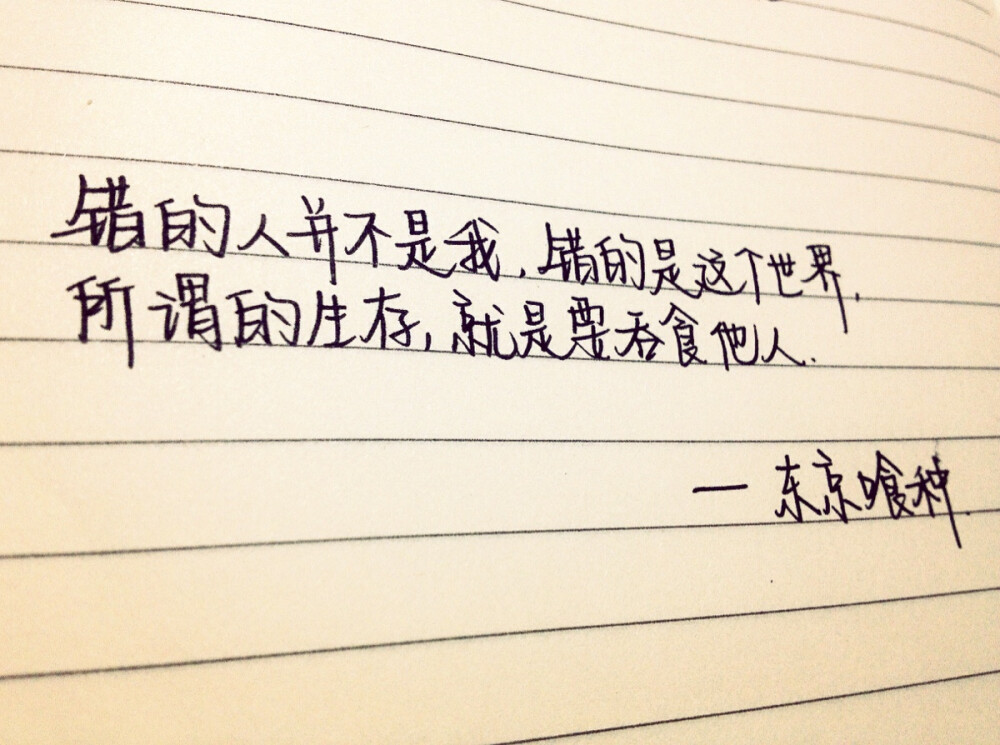 错的人并不是我,错的是这个世界,
所谓的生存,就是要吞食他人.
— 东京喰种.